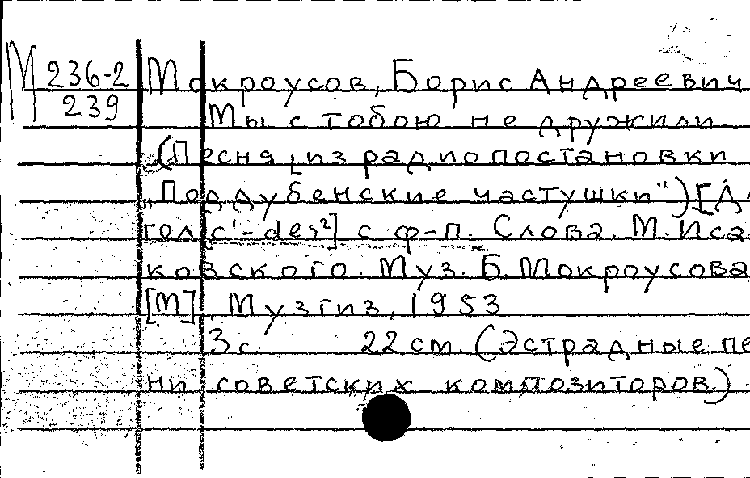 М 236-2 Мокроусов, Борис Андреевич
239 Мы с тобою не дружили
(Песня из радиопостановки
„Поддубенские частушки") [Для
голоса c¹-des²] с ф-п. Слова М. Иса-
ковского. Муз. Б. Мокроусова
[М], Музгиз, 1953
3 с. 22 см. (Эстрадные пе
ни советских композиторов)